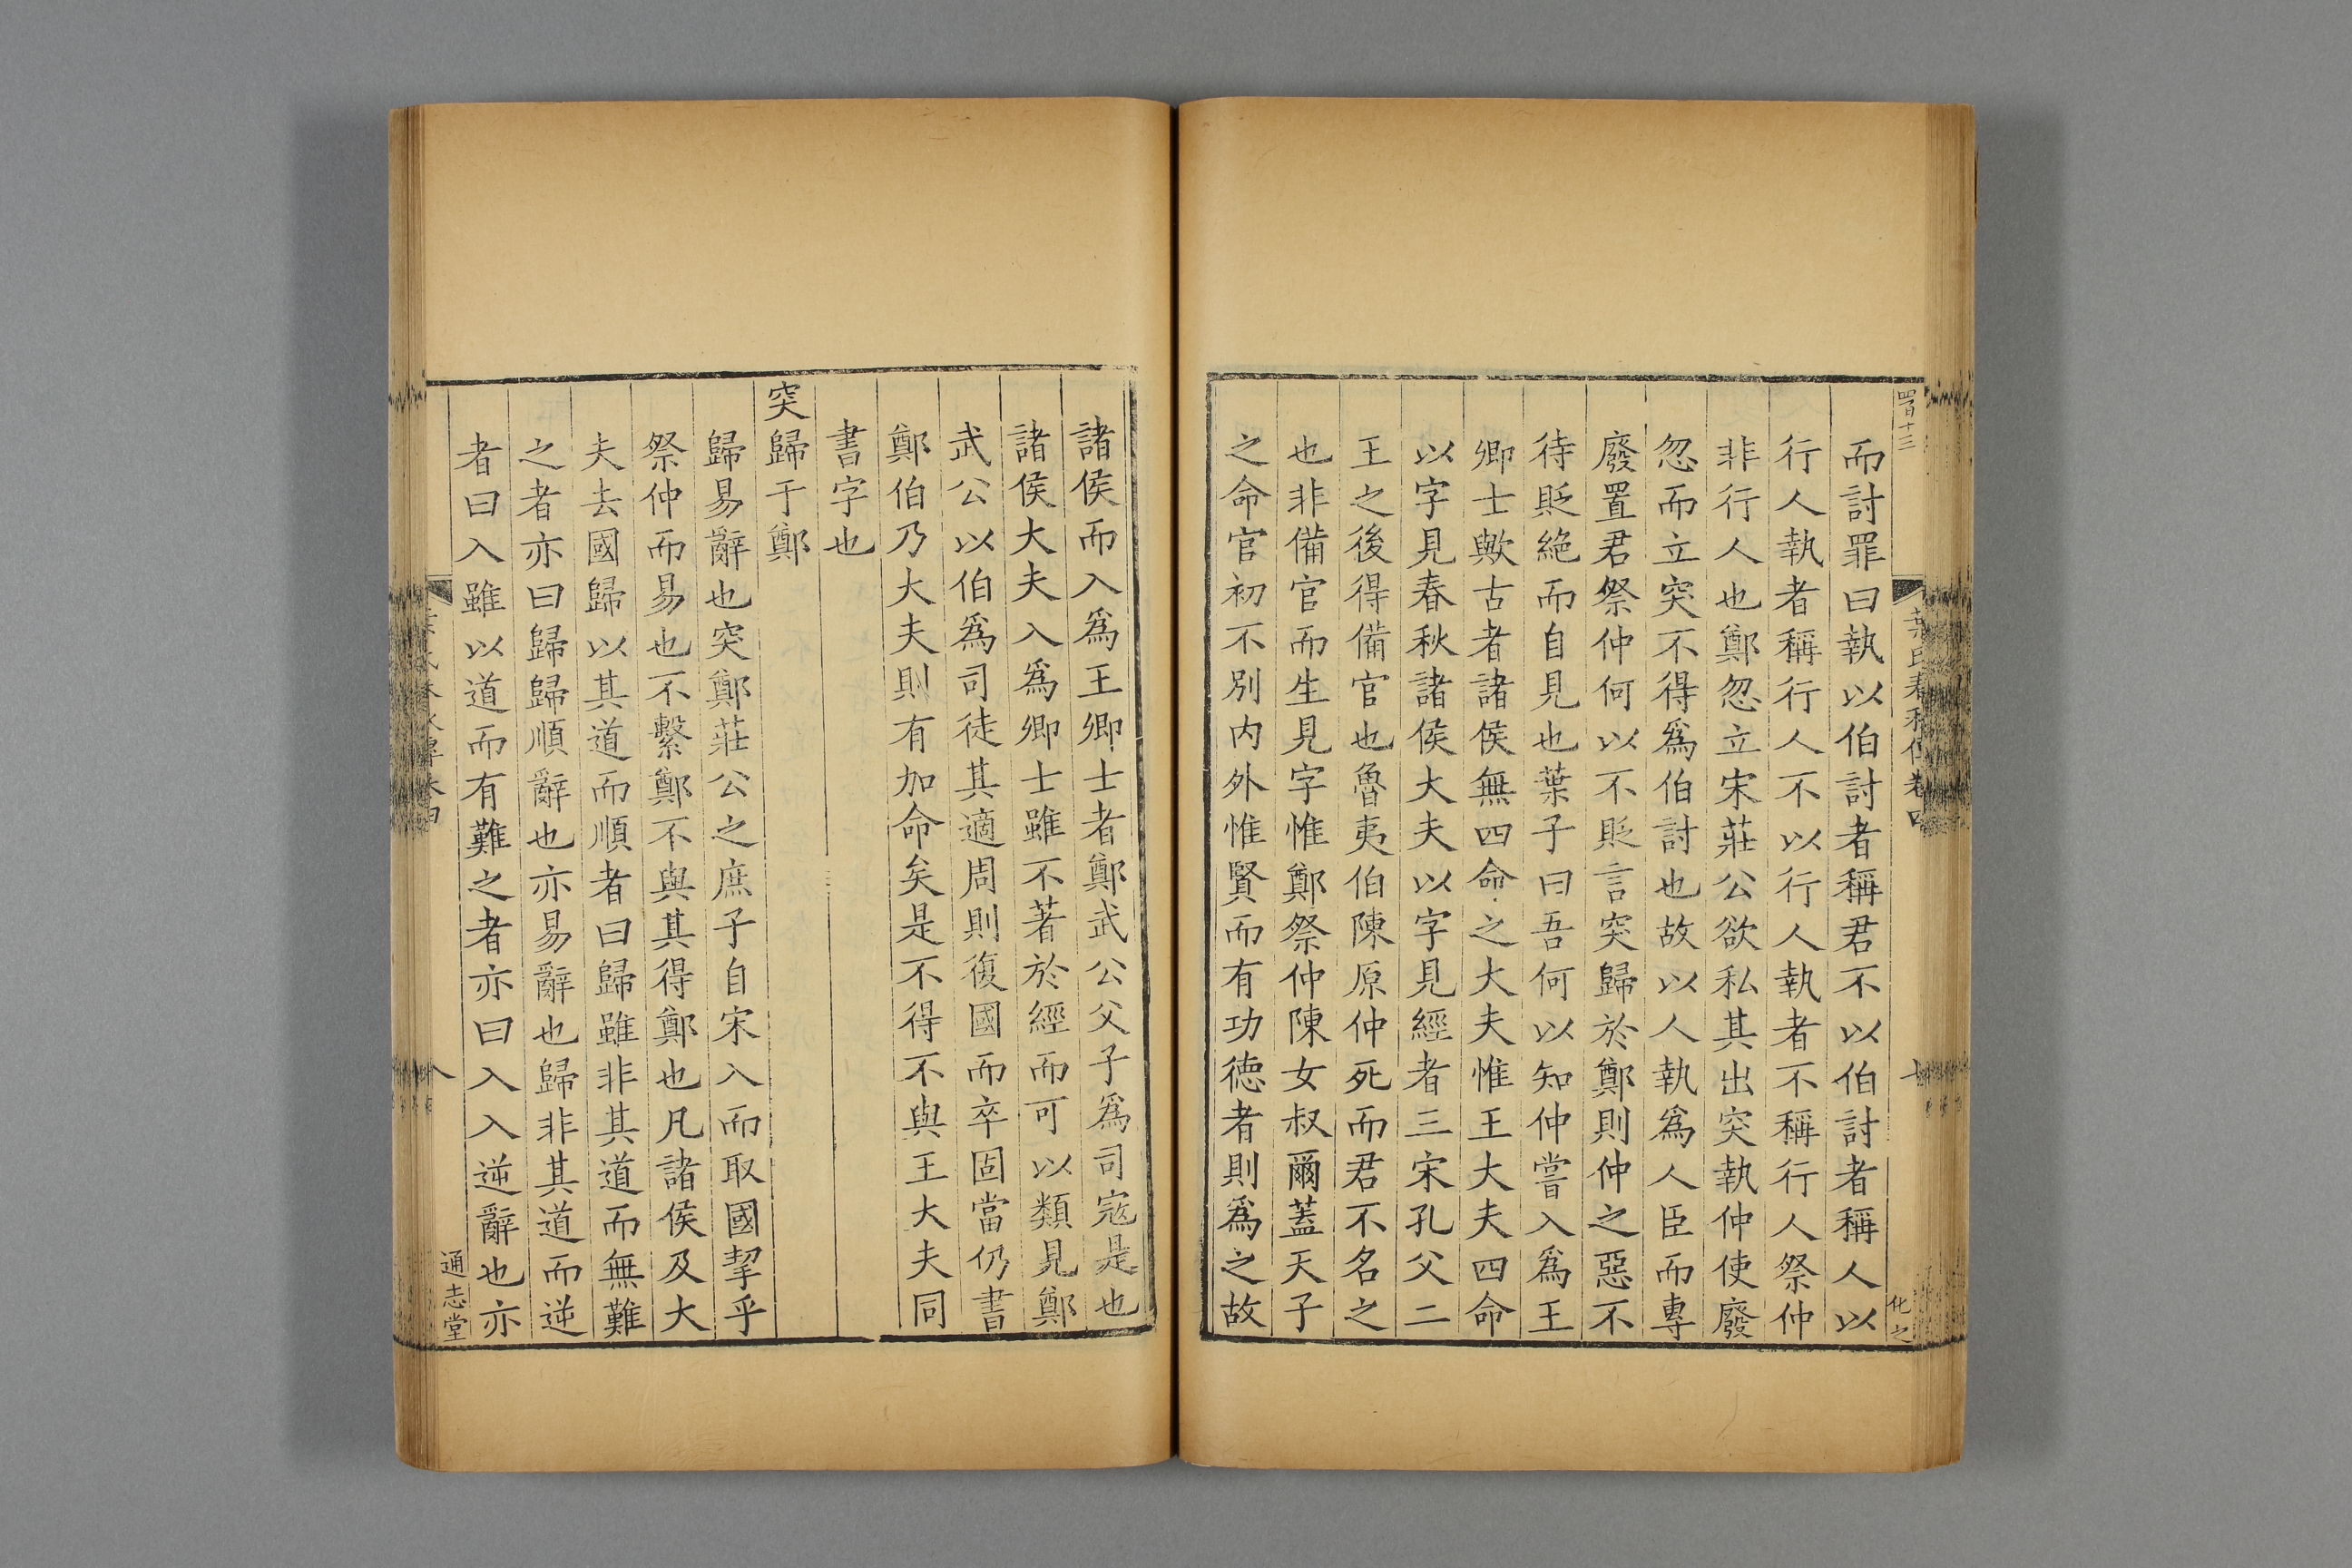 四百十三
葉氏春秋傳卷四
七
化之
而討罪曰執以伯討者稱君不以伯討者稱人以
行人執者稱行人不以行人執者不稱行人祭仲
非行人也鄭忽立宋莊公欲私其出突執仲使廢
忽而立突不得爲伯討也故以人執爲人臣而專
廢置君祭仲何以不貶言突歸於鄭則仲之惡不
待貶絶而自見也葉子曰吾何以知仲嘗入爲王
卿士歟古者諸侯無四命之大夫惟王大夫四命
以字見春秋諸侯大夫以字見經者三宋孔父二
王之後得備官也魯夷伯陳原仲死而君不名之
也非備官而生見字惟鄭祭仲陳女叔爾蓋天子
之命官初不別内外惟賢而有功徳者則爲之故
諸侯而入爲王卿士者鄭武公父子爲司寇是也
諸侯大夫入爲卿士雖不著於經而可以類見鄭
武公以伯爲司徒其適周則復國而卒固當仍書
鄭伯乃大夫則有加命矣是不得不與王大夫同
書字也
突歸于鄭
歸易辭也突鄭莊公之庶子自宋入而取國挈乎
祭仲而易也不繫鄭不與其得鄭也凡諸侯及大
夫去國歸以其道而順者曰歸雖非其道而無難
之者亦曰歸歸順辭也亦易辭也歸非其道而逆
者曰入雖以道而有難之者亦曰入入逆辭也亦
八
通志堂